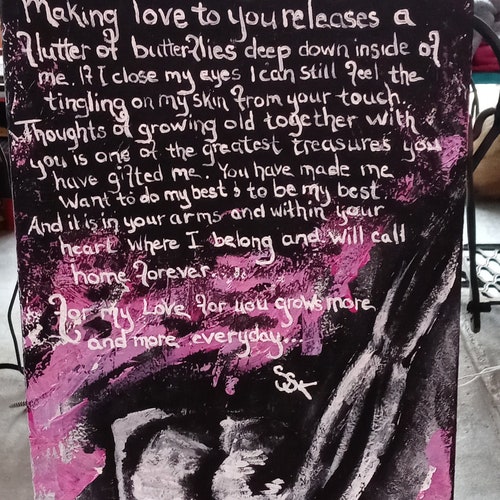 Making love to you releases a
flutter of butterflies deep down inside of
me. If I close my eyes I can still feel the
tingling on my skin from your touch.
Thoughts of growing old together with
you is one of the greatest treasures you
have gifted me. You have made me
want to do my best & to be my best
And it is in your arms and within your
heart where I belong and will call
home forever....
For my Love for you grows more
and more everyday...